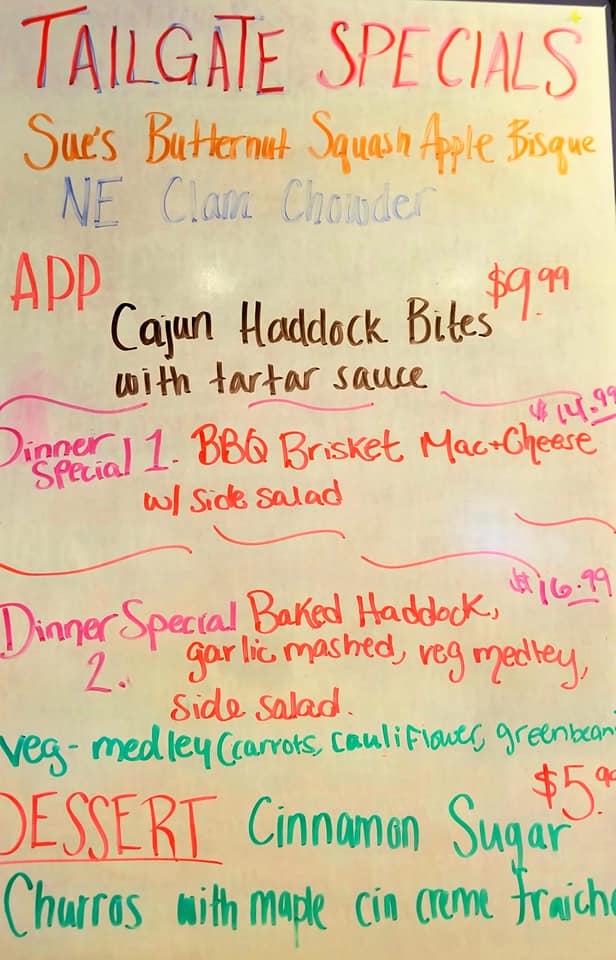 TAILGATE SPECIALS
Sue's Butternut Squash Apple Bisque
NE Clam Chowder
APP
$9.99
Cajun Haddock Bites
with tartar sauce
$14.99
Dinner Special 1. BBQ Brisket Mac+Cheese
w/ side salad
$16.99
Dinner Special 2. Baked Haddock,
garlic mashed, veg medley,
side salad.
veg-medley (carrots, cauliflower, greenbean
$5.99
DESSERT Cinnamon Sugar
Churros with maple cin creme fraiche